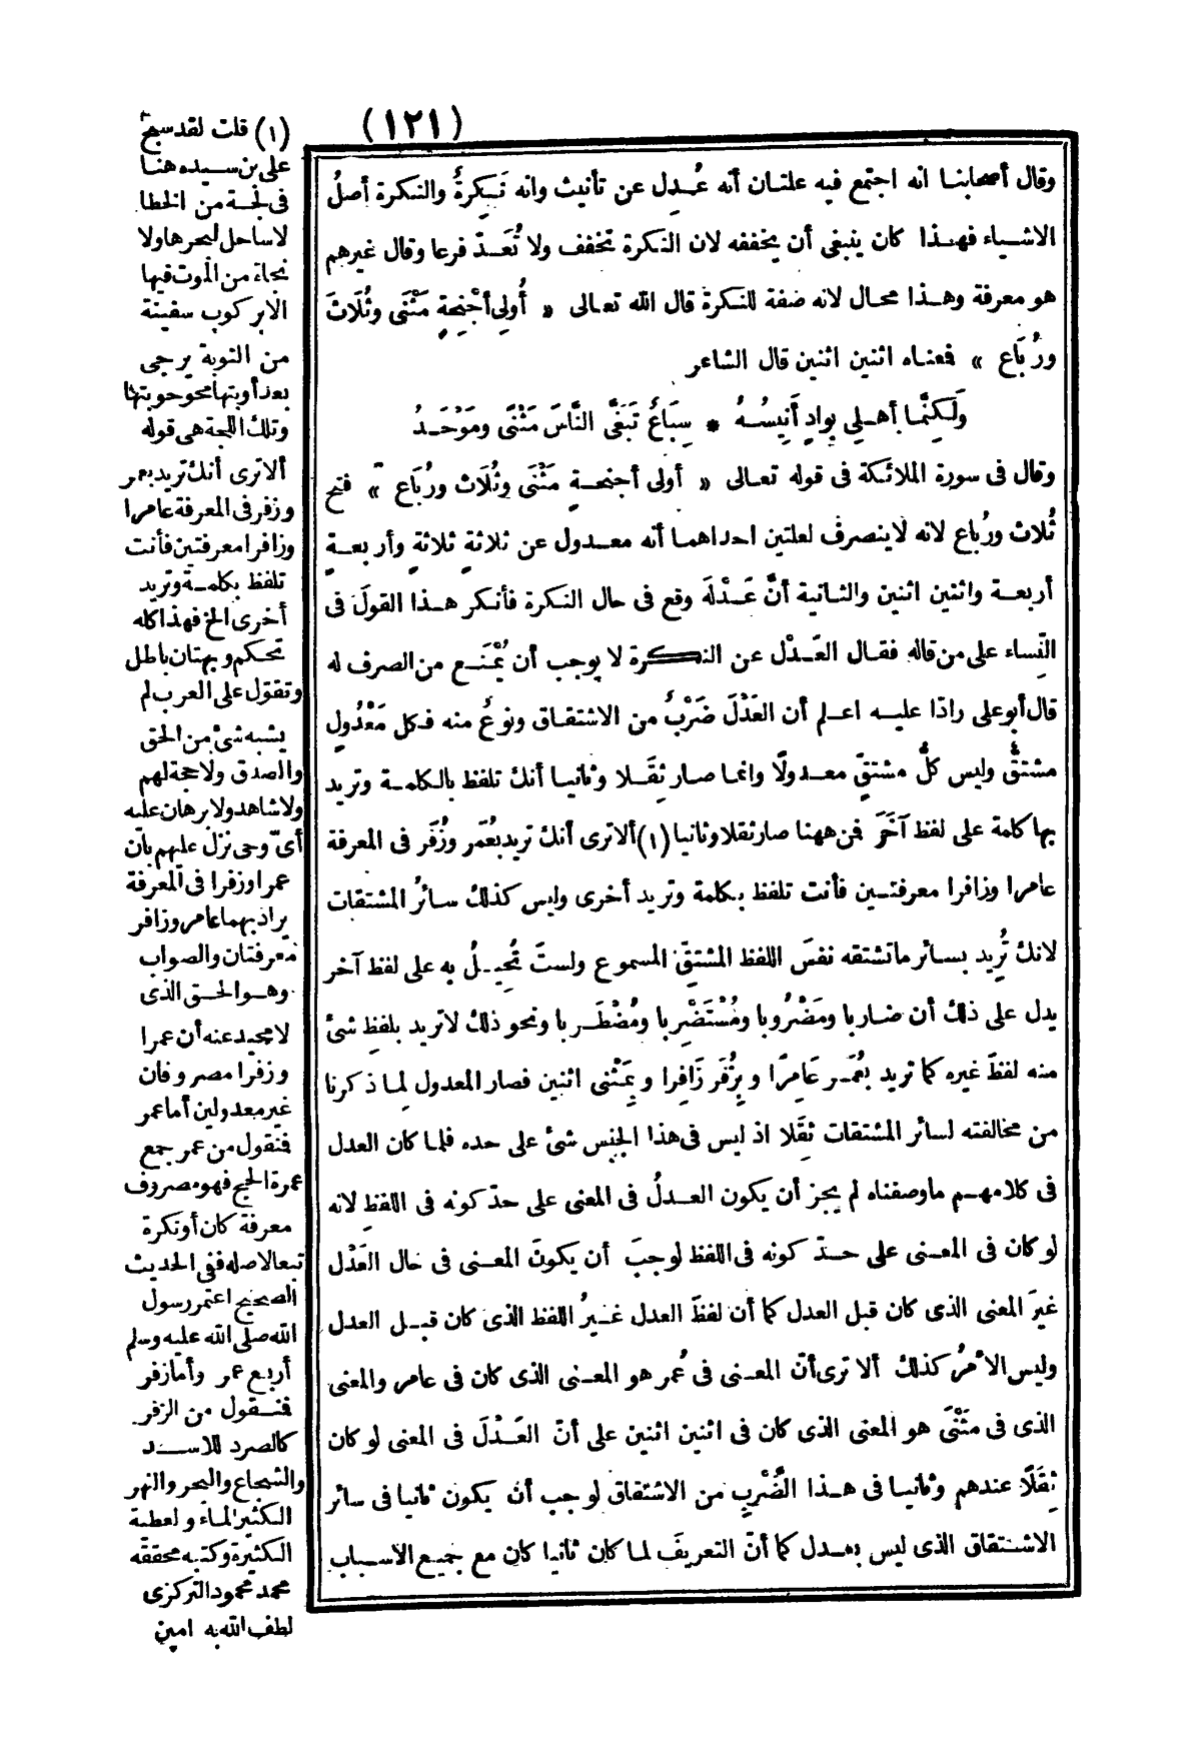 (١٢١)
وقال أصحابنا انه اجتمع فيه علتان أنه عُدِل عن تأنيث وانه نَكِرةٌ والنكرة أصلُ
الاشياء فهذا كان ينبغى أن يخففه لان النكرة تخفف ولا تُعَدّ فرعا وقال غيرهم
هو معرفة وهذا محال لانه صفة للنكرة قال الله تعالى « أُولِى أَجْنِحةٍ مَثْنَى وثُلَاثَ
ورُبَاع » فمعناه اثنين اثنين قال الشاعر
ولَكِنَّمَا أهلِى بِوادٍ أَنِيسُهُ * سِبَاعٌ تَبَغَّى النَّاسَ مَثْنَى ومَوْحَدُ
وقال فى سورة الملائكة فى قوله تعالى « أولى أجنحةٍ مَثْنَى وثُلَاثَ ورُبَاع » فتح
ثُلاث ورُباع لانه لاينصرف لعلتين احداهما أنه معدول عن ثلاثةٍ ثلاثةٍ وأربعةٍ
أربعة واثنين اثنين والثانية أنَّ عَدْلَه وقع فى حال النكرة فأنكر هذا القولَ فى
النِّساء على من قاله فقال العَدْل عن النكرة لا يوجب أن يُمْنَع من الصرف له
قال أبوعلى رادّا عليه اعلم أن العَدْلَ ضَرْبٌ من الاشتقاق ونوعٌ منه فكل مَعْدُولٍ
مشتقٌّ وليس كلُّ مشتقٍّ معدولًا وانما صار ثِقَلا وثانيا أنك تلفظ بالكلمة وتريد
بها كلمة على لفظ آخَرَ فمن ههنا صار ثقلا وثانيا (١) ألاترى أنك تريد بعُمَر وزُفَر فى المعرفة
عامرا وزافرا معرفتين فأنت تلفظ بكلمة وتريد أخرى وليس كذلك سائرُ المشتقات
لانك تُرِيد بسائر ماتشتقه نفسَ اللفظ المشتقِّ المسموع ولستَ تُحِيلُ به على لفظ آخر
يدل على ذلك أن ضاربا ومَضْرُوبا ومُسْتَضْرِبا ومُضْطَرِبا ونحو ذلك لاتريد بلفظِ شئ
منه لفظَ غيره كما تريد بعُمَر عَامِرًا وبِزُفَر زَافِرا وبِمَثْنى اثنين فصار المعدول لِما ذكرنا
من مخالفته لسائر المشتقات ثِقَلا اذ ليس فى هذا الجنس شئ على حده فلما كان العدل
فى كلامهم ماوصفناه لم يجز أن يكون العدلُ فى المعنى على حدّ كونه فى اللفظِ لانه
لو كان فى المعنى على حدّ كونه فى اللفظ لوجبَ أن يكونَ المعنى فى حال العَدْل
غيرَ المعنى الذى كان قبل العدل كما أن لفظَ العدل غيرُ اللفظ الذى كان قبل العدل
وليس الأمرُ كذلك ألا ترى أنّ المعنى فى عُمر هو المعنى الذى كان فى عامر والمعنى
الذى فى مَثْنَى هو المعنى الذى كان فى اثنين اثنين على أنّ العَدْلَ فى المعنى لو كان
ثِقَلًا عندهم وثانيا فى هذا الضَّرْبِ من الاشتقاق لوجب أن يكون ثانيا فى سائر
الاشتقاق الذى ليس بعدل كما أنّ التعريفَ لما كان ثانيا كان مع جميع الاسباب
(١) قلت لقد سبح
على بن سيده هنا
فى لجة من الخطا
لا ساحل لبحرها ولا
نجاة من الموت فيها
الا بركوب سفينة
من التوبة يرجى
بعد أوبتها محو حوبتها
وتلك اللجة هى قوله
ألا ترى أنك تريد بعمر
وزفر فى المعرفة عامرا
وزافرا معرفتين فأنت
تلفظ بكلمة وتريد
أخرى الخ فهذا كله
تحكم وبهتان باطل
وتقوّل على العرب لم
يشبه شئ من الحق
والصدق ولا حجة لهم
ولا شاهد ولا برهان عليه
أىّ وحى نزل عليهم بأن
عمرا وزفرا فى المعرفة
يراد بهما عامر وزافر
معرفتان والصواب
وهو الحق الذى
لا محيد عنه أن عمرا
وزفرا مصروفان
غير معدولين أما عمر
فنقول من عمر جمع
عمرة الحج فهو مصروف
معرفة كان أو نكرة
تبعا لاصله ففى الحديث
الصحيح اعتمر رسول
الله صلى الله عليه وسلم
أربع عمر وأما زفر
فنقول من الزفر
كالصرد للاسد
والشجاع والبحر والنهر
الكثير الماء والعطية
الكثيرة وكتبه محققه
محمد محمود التركزى
لطف الله به امين